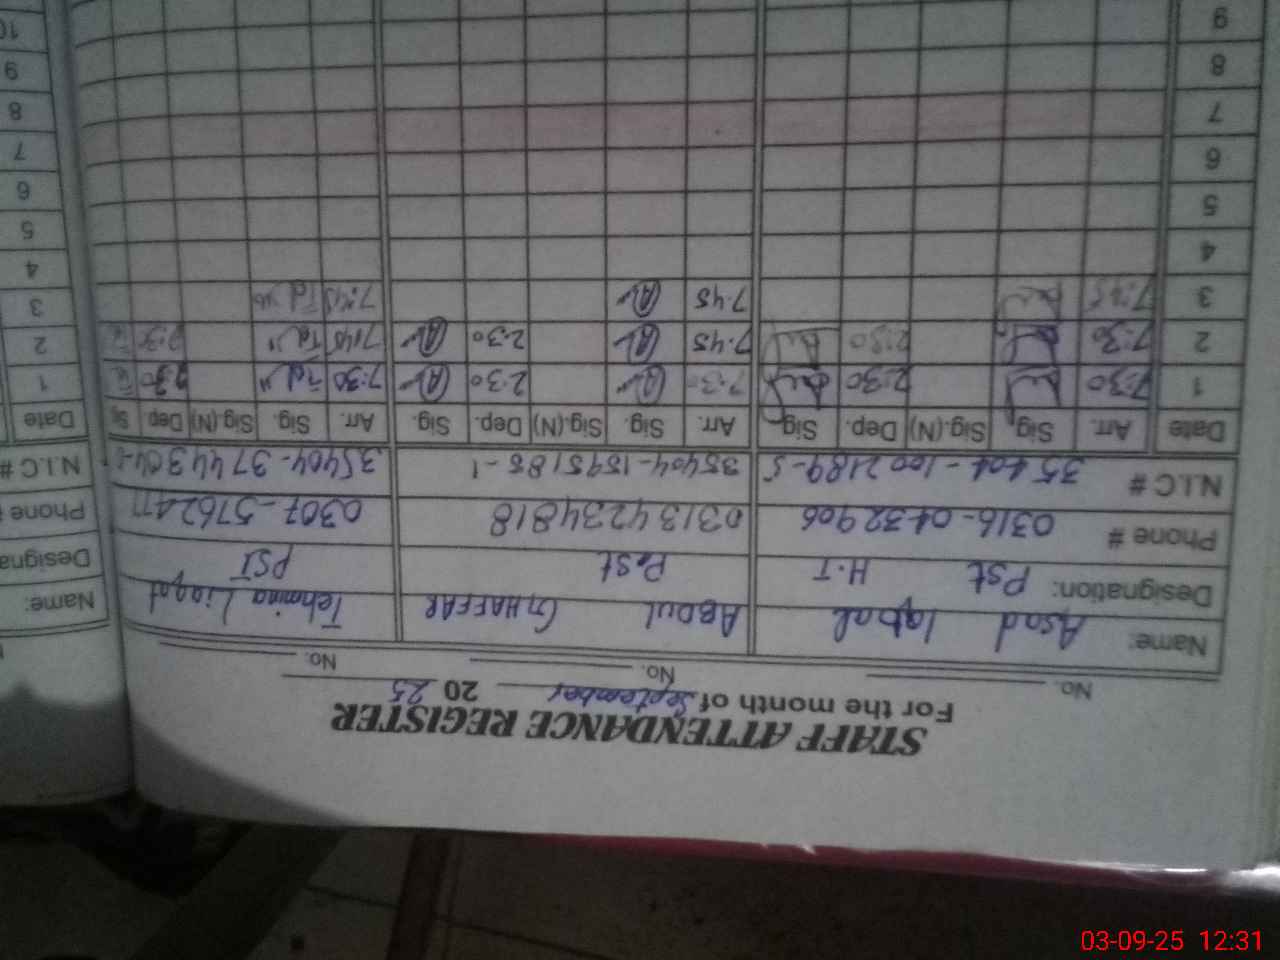 STAFF ATTENDANCE REGISTER
For the month of September 20 25
No. No. No.
Name: Asad Iqbal ABDUL GHAFFAR Tehmina Liaqat Name:
Designation: Pst H.T P.st PST Designa
Phone # 0316-0432906 03134234818 0307-5762471 Phone #
N.I.C # 35404-1002189-5 35404-1595185-1 35404-3744304- N.I.C #
Date Arr. Sig. Sig.(N) Dep. Sig. Arr. Sig. Sig.(N) Dep. Sig. Arr. Sig. Sig.(N) Dep. Si Date
1 7:30 2:30 7:30 2:30 7:30 2:30 1
2 7:30 2:30 7.45 2.30 7:45 2:30 2
3 7:45 7.45 7:45 3
4 4
5 5
6 6
7 7
8 8
9 9
10
03-09-25 12:31